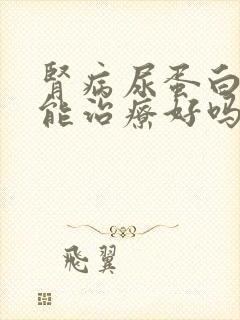 腎病尿蛋白
能治療好吗
飛翼